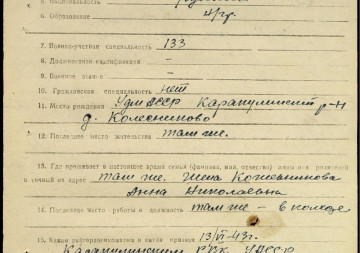 6. Образование 4 гр.
7. Военно-учетная специальность 133
8. Должностная квалификация –
9. Военное звание –
10. Гражданская специальность нет
11. Место рождения УдмАССР Каракулинский р-н
д. Колесниково
12. Последнее место жительства там же.
13. Где проживает в настоящее время семья (фамилия, имя, отчество)
и точный их адрес там же. Жена
Анна Николаевна
14. Последнее место работы и должность там же – в колхозе
15. Каким райгорвоенкоматом и когда призван 13/VI-43г.
Каракулинским РВК УАССР